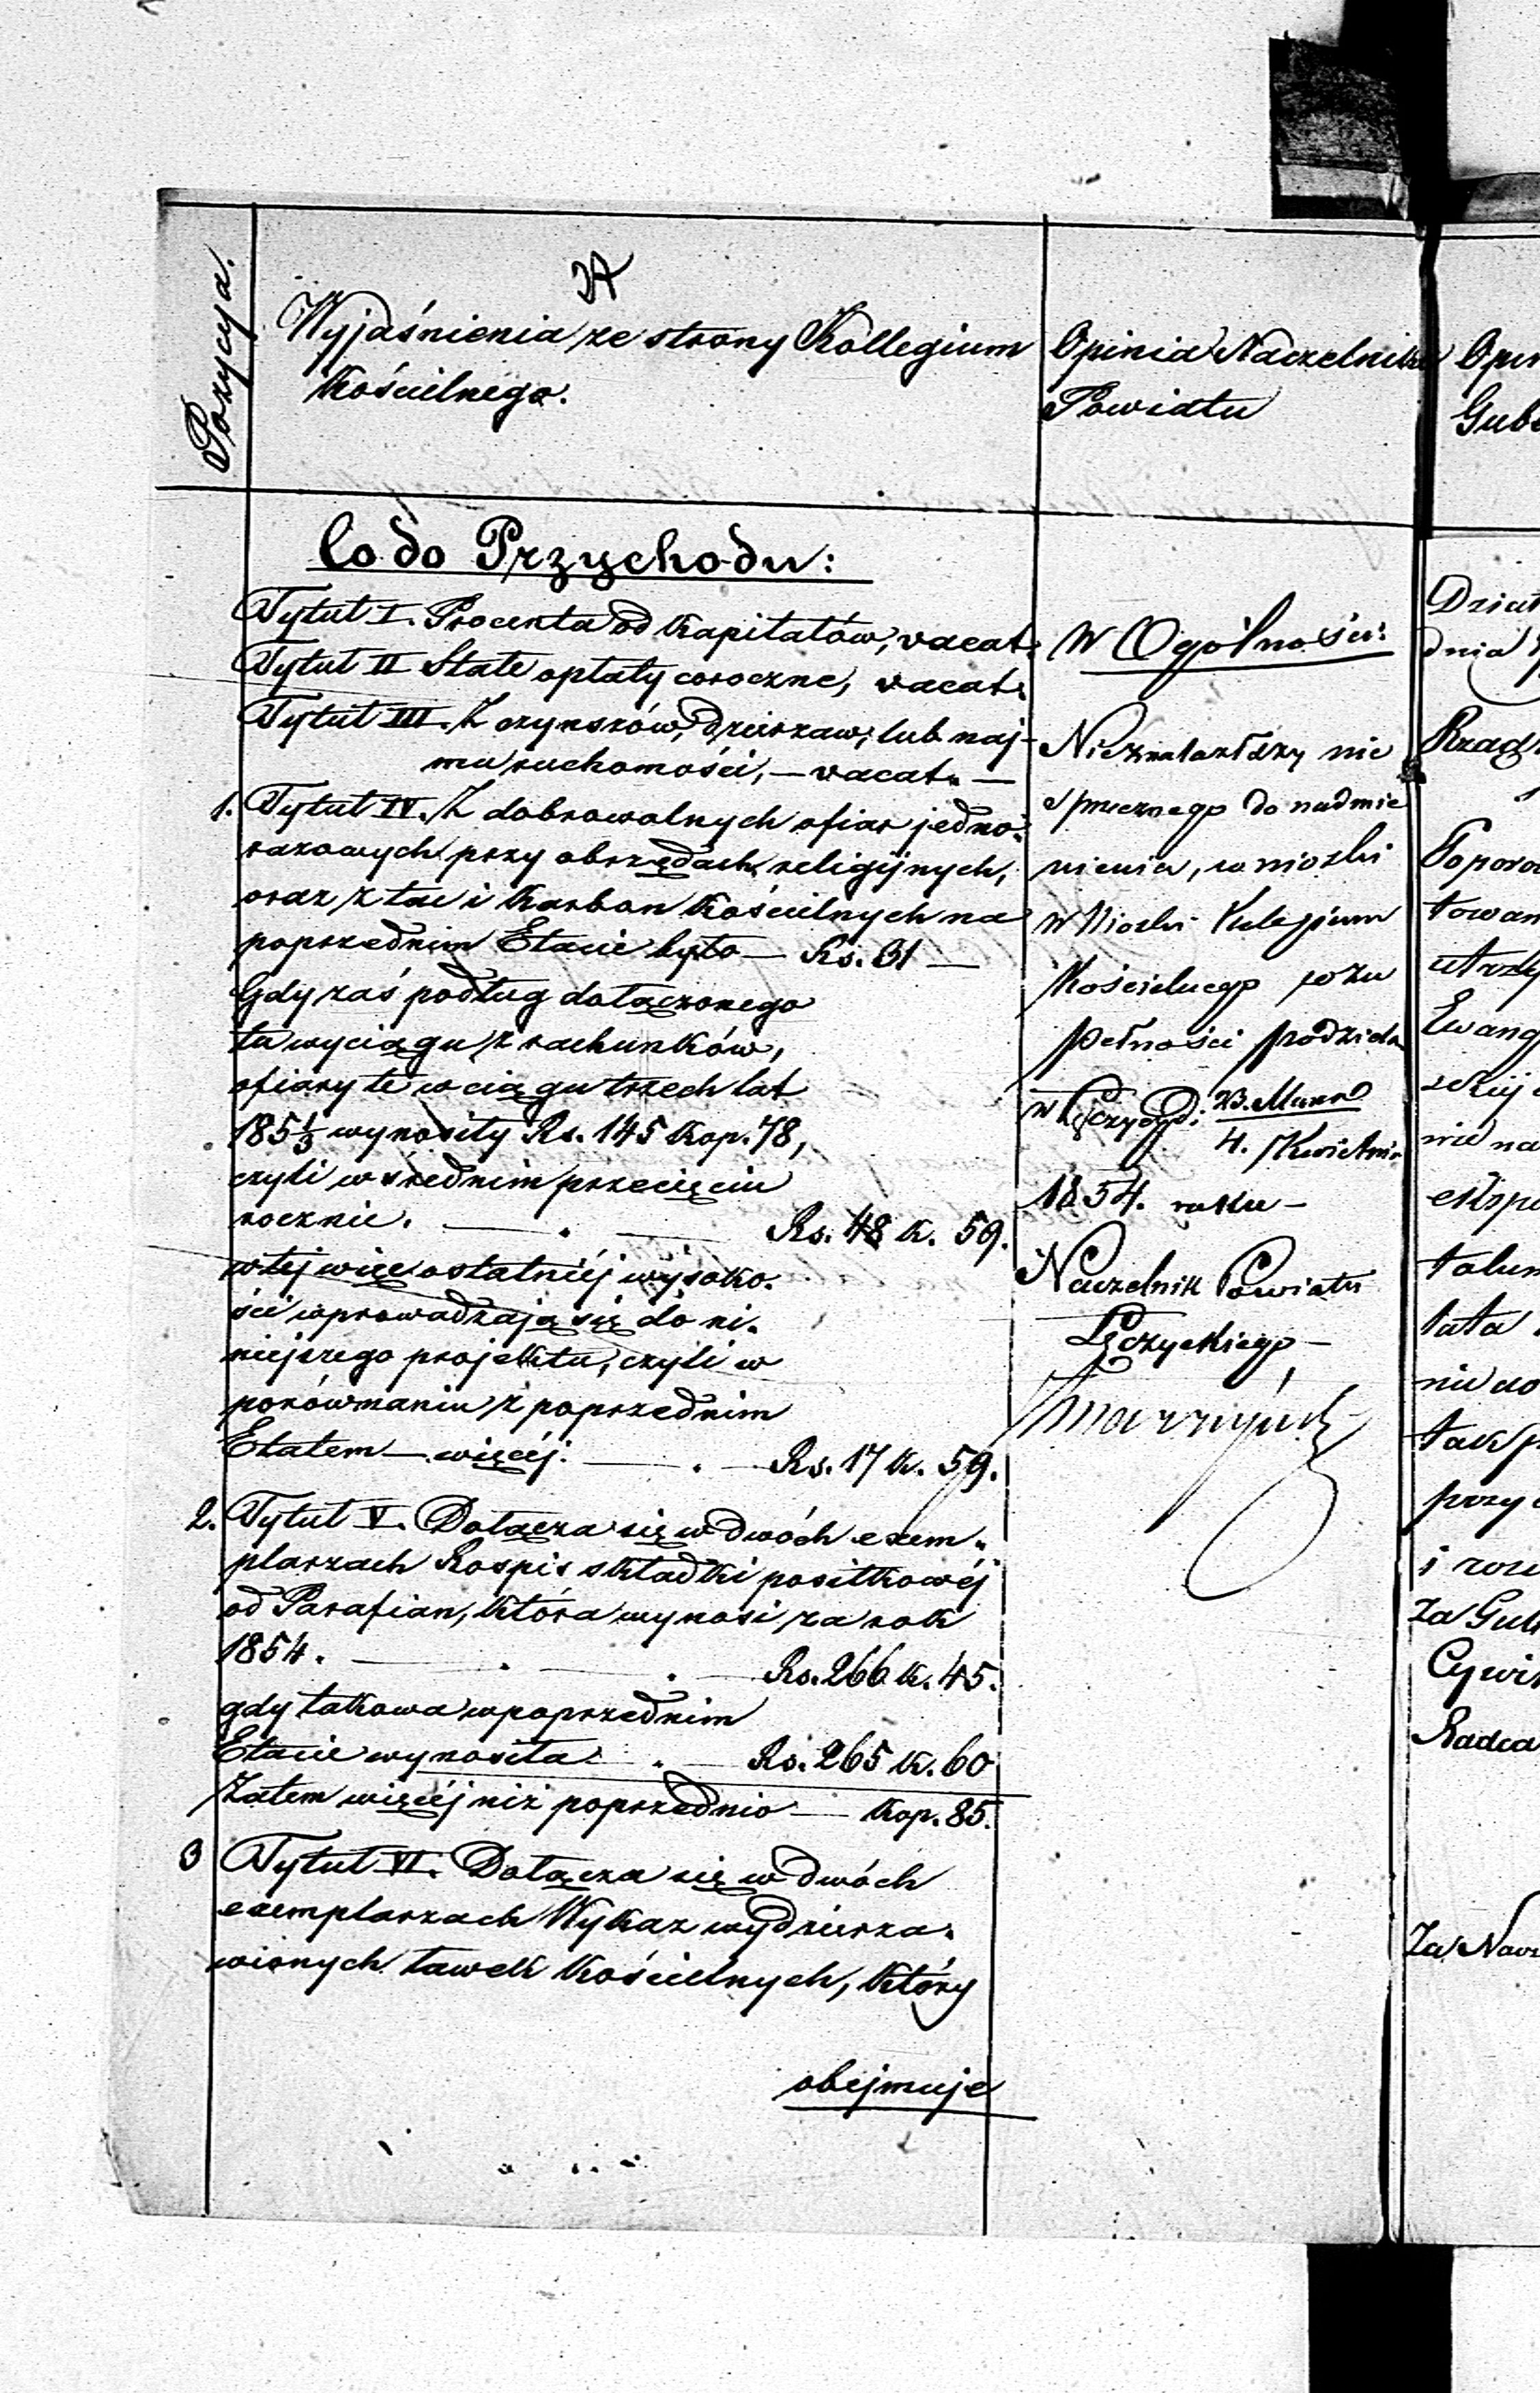 Pozycya.
Wyjaśnienia ze strony Kollegium
Kościelnego.
Co do Przychodu:
Tytuł I. Procenta od Kapitałów, vacat.
Tytuł II Stałe opłaty coroczne, vacat.
Tytuł III. Z czynszów, dzierzaw, lub naj-
mu ruchomości, — vacat. —
1. Tytuł IV. Z dobrowolnych ofiar jedno-
razowych przy obrzędach religijnych,
oraz z tac i Karbon Kościelnych na
poprzednim Etacie było — Rs. 31 —
Gdy zaś podług dołączonego
tu wyciągu z rachunków,
ofiary te w ciągu trzech lat
185 1/3 wynosiły Rs. 145 Kop. 78,
czyli w średnim przecięciu
rocznie. — . — Rs. 48 K. 59.
w tej więc ostatniéj wysoko-
ści wprowadzają się do ni-
niejszego projektu, czyli w
porównaniu z poprzednim
Etatem — więcéj. — . — Rs. 17 K. 59.
2. Tytuł V. Dołącza się w dwóch exem-
plarzach Rospis składki posiłkowéj
od Parafian, która wynosi za rok
1854. — . — . — Rs. 266 K. 45.
gdy takowa w poprzednim
Etacie wynosiła. . — Rs. 265 K. 60
Zatem więcéj niż poprzednio — Kop. 85.
3 Tytuł VI. Dołącza się w dwóch
exemplarzach Wykaz wydzierza-
wionych ławek Kościelnych, Który
obejmuje
Opinia Naczelnika
Powiatu
W Ogólności:
Nieznalazłszy nic
sprzecznego do nadmie
nienia, wnioski
Kolegium
Kościelnego w zu
pełności podziela
w Łęczycy d: 23. Marca
4. Kwietnia
1854. roku —
Naczelnik Powiatu
Łęczyckiego —
Opin
Gube
Dział
dnia
Rząd
towan
Ewang
nie na
tak p
przy
Za Gub
Cywil
Radca
Za Nacz